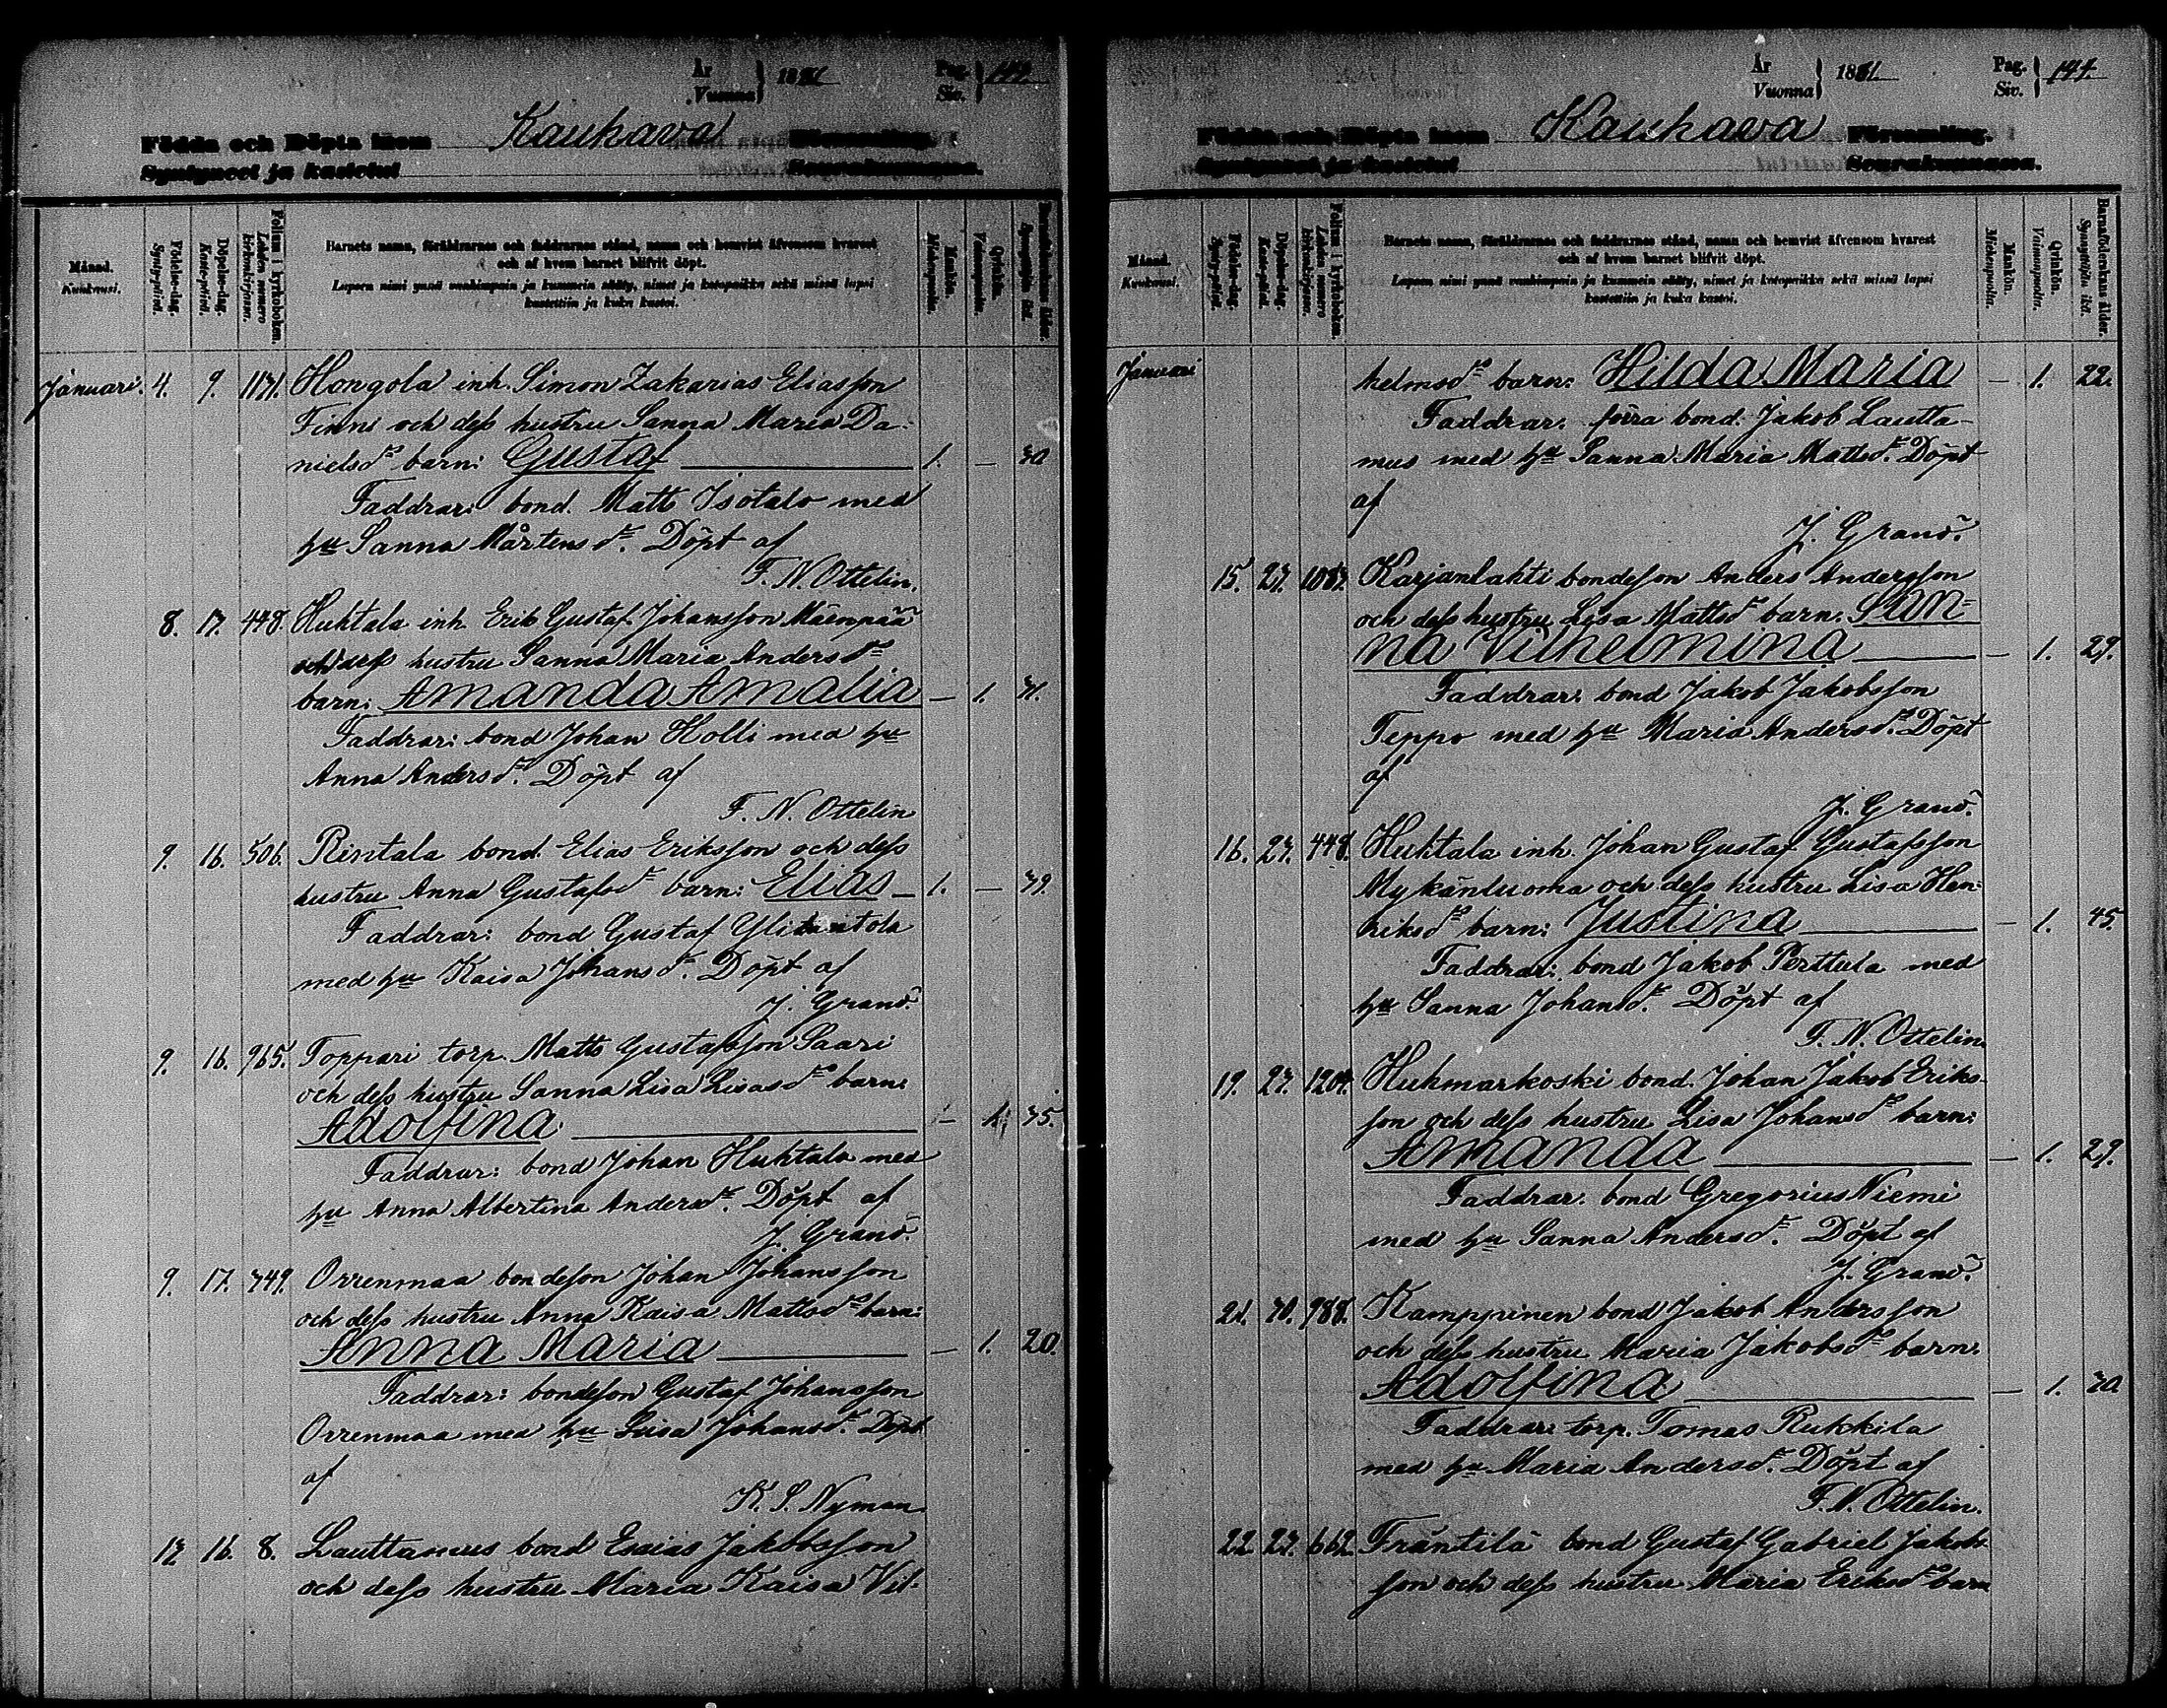 År
Vuonna } 1881
Pag.
Siv. }
Födda och Döpta inom Kauhava Församling.
Syntyneet ja kastetut Seurakunnassa.
Månad.
Kuukausi.
Födelse-dag.
Syntymä-päivä.
Döpelse-dag.
Kaste-päivä.
Folium i kyrkoboken.
Lehden numero kirkonkirjassa.
Barnets namn, föräldrarnes och faddrarnes stånd, namn och hemvist äfvensom hvarest
och af hvem barnet blifvit döpt.
Lapsen nimi ynnä vanhimpain ja kummein sääty, nimet ja kotopaikka sekä missä lapsi
kastettiin ja kuka kastoi.
Mankön.
Miehenpuolta.
Qvinkön.
Vaimonpuolta.
Barnaföderskans ålder.
Synnyttäjän ikä.
Januari. 4. 9. 1131. Hongola inh. Simon Zakarias Eliasson
Finni och dess hustru Sanna Maria Da-
nielsdr barn: Gustaf 1. — 30
Faddrar: bond. Matts Isotalo med
hu Sanna Mårtensdr. Döpt af
F. N. Ottelin.
8. 17. 448. Huhtala inh Erik Gustaf Johansson Mäenpää
och dess hustru Sanna Maria Andersdr
barn: Amanda Amalia — 1. 31.
Faddrar: bond Johan Holli med hu
Anna Andersdr. Döpt af
F. N. Ottelin
9. 16. 506. Rintala bond. Elias Eriksson och dess
hustru Anna Gustafsdr barn: Elias — 1. — 39.
Faddrar: bond Gustaf
med hu Kaisa Johansdr. Döpt af
J. Granö.
9. 16. 965. Toppari torp. Matts Gustafsson Saari
och dess hustru Sanna Lisa Lisasdr barn:
Adolfina — 1. 35.
Faddrar: bond Johan Huhtala med
hu Anna Albertina Andersdr. Döpt af
J. Granö.
9. 17. 349. Orrenmaa bondeson Johan Johansson
och dess hustru Anna Kaisa Mattsdr barn:
Anna Maria — 1. 20.
Faddrar: bondeson Gustaf Johansson
Orrenmaa med hu Lisa Johansdr. Döpt
af
K. S. Nyman.
13 16. 8. Lauttamus bond Esaias Jakobsson
och dess hustru Maria Kaisa Vil-
År
Vuonna } 1881.
Pag.
Siv. } 144.
Födda och Döpta inom Kauhava Församling.
Syntyneet ja kastetut Seurakunnassa.
Månad.
Kuukausi.
Födelse-dag.
Syntymä-päivä.
Döpelse-dag.
Kaste-päivä.
Folium i kyrkoboken.
Lehden numero kirkonkirjassa.
Barnets namn, föräldrarnes och faddrarnes stånd, namn och hemvist äfvensom hvarest
och af hvem barnet blifvit döpt.
Lapsen nimi ynnä vanhimpain ja kummein sääty, nimet ja kotopaikka sekä missä lapsi
kastettiin ja kuka kastoi.
Mankön.
Miehenpuolta.
Qvinkön.
Vaimonpuolta.
Barnaföderskans ålder.
Synnyttäjän ikä.
Januari helmsdr barn: Hilda Maria — 1. 22.
Faddrar: förra bond. Jakob Lautta-
mus med hu Sanna Maria Mattsdr. Döpt
af
J. Granö.
15. 23. 1083. Karjanlahti bondeson Anders Andersson
och dess hustru Lisa Mattsdr barn: San-
na Vilhelmina — 1. 29.
Faddrar: bond Jakob Jakobsson
Teppo med hu Maria Andersdr. Döpt
af
J. Granö.
16. 23. 448. Huhtala inh. Johan Gustaf Gustafsson
Mykänluoma och dess hustru Lisa Hen-
riksdr barn: Justina — 1. 45.
Faddrar: bond Jakob Perttula med
hu Sanna Johansdr. Döpt af
F. N. Ottelin.
19. 23. 1204. Huhmarkoski bond. Johan Jakob Eriks-
son och dess hustru Lisa Johansdr barn:
Amanda — 1. 29.
Faddrar: bond Gregorius Niemi
med hu Sanna Andersdr. Döpt af
J. Granö.
21. 30. 988. Kamppinen bond Jakob Andersson
och dess hustru Maria Jakobsdr barn:
Adolfina — 1. 30
Faddrar: torp. Tomas Rukkila
med hu Maria Andersdr. Döpt af
F. N. Ottelin.
22 23. 662. Fräntilä bond Gustaf Gabriel Jakobs-
son och dess hustru Maria Eriksdr barn